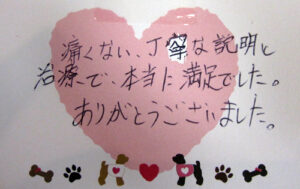 痛くない、丁寧な説明と
治療で、本当に満足でした。
ありがとうございました。